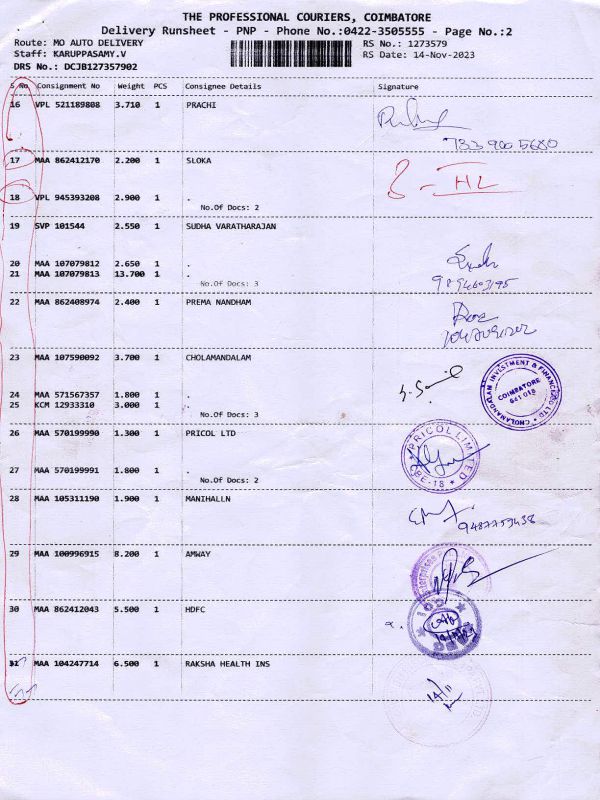 THE PROFESSIONAL COURIERS, COIMBATORE
Delivery Runsheet - PNP - Phone No.:0422-3505555 - Page No.:2
Route: MO AUTO DELIVERY RS No.: 1273579
Staff: KARUPPASAMY.V RS Date: 14-Nov-2023
DRS No.: DCJB127357902
S No. Consignment No Weight PCS Consignee Details Signature
16 VPL 521189808 3.710 1 PRACHI
733 900 5680
17 MAA 862412170 2.200 1 SLOKA
HL
18 VPL 945393208 2.900 1 .
No.Of Docs: 2
19 SVP 101544 2.550 1 SUDHA VARATHARAJAN
20 MAA 107079812 2.650 1 .
21 MAA 107079813 13.700 1 .
No.Of Docs: 3
22 MAA 862408974 2.400 1 PREMA NANDHAM
23 MAA 107590092 3.700 1 CHOLAMANDALAM
CHOLAMANDALAM INVESTMENT & FINANCE CO LTD
COIMBATORE
641 018
24 MAA 571567357 1.800 1 .
25 KCM 12933310 3.000 1 .
No.Of Docs: 3
26 MAA 570199990 1.300 1 PRICOL LTD
PRICOL LIMITED
CBE-18
27 MAA 570199991 1.800 1 .
No.Of Docs: 2
28 MAA 105311190 1.900 1 MANIHALLN
29 MAA 100996915 8.200 1 AMWAY
30 MAA 862412043 5.500 1 HDFC
31 MAA 104247714 6.500 1 RAKSHA HEALTH INS
14/11